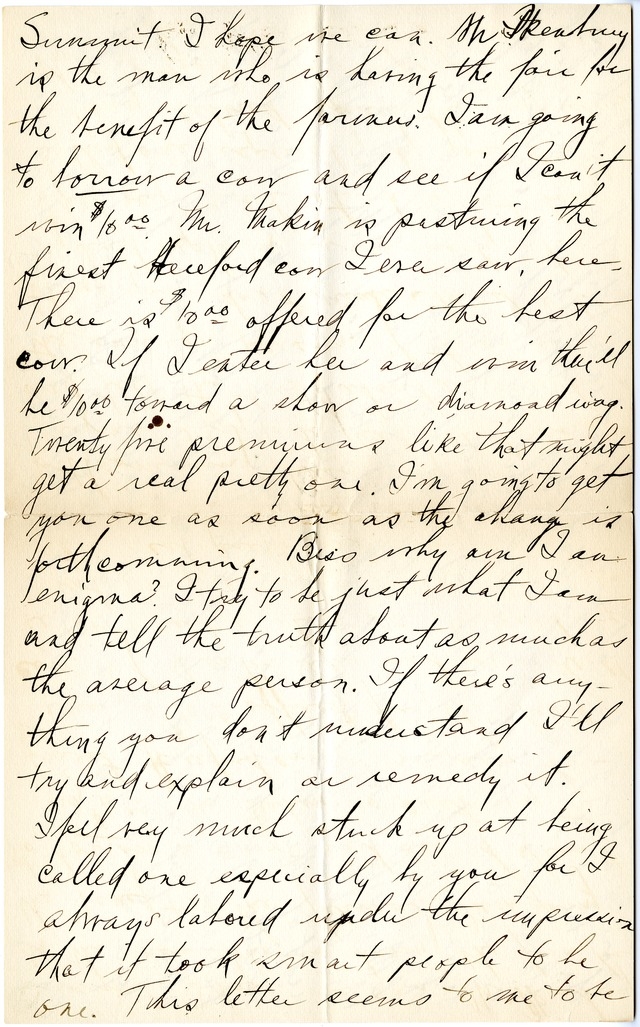 Summit I hope we can. Mr. Skenbury
is the man who is having the fair for
the benefit of the farmers. I am going
to borrow a cow and see if I can't
win $10.00. Mr. Makin is pasturing the
finest Hereford cow I ever saw, here.
There is $10.00 offered for the best
cow. If I enter her and win they'll
be $10.00 toward a show or diamond ring.
Twenty five premiums like that might
get a real pretty one. I'm going to get
you one as soon as the change is
forthcomming. Bess why am I an
enigma? I try to be just what I am
and tell the truth about as much as
the average person. If there's any-
thing you don't understand I'll
try and explain or remedy it.
I feel very much stuck up at being
called one especially by you for I
always labored under the impression
that it took smart people to be
one. This letter seems to me to be